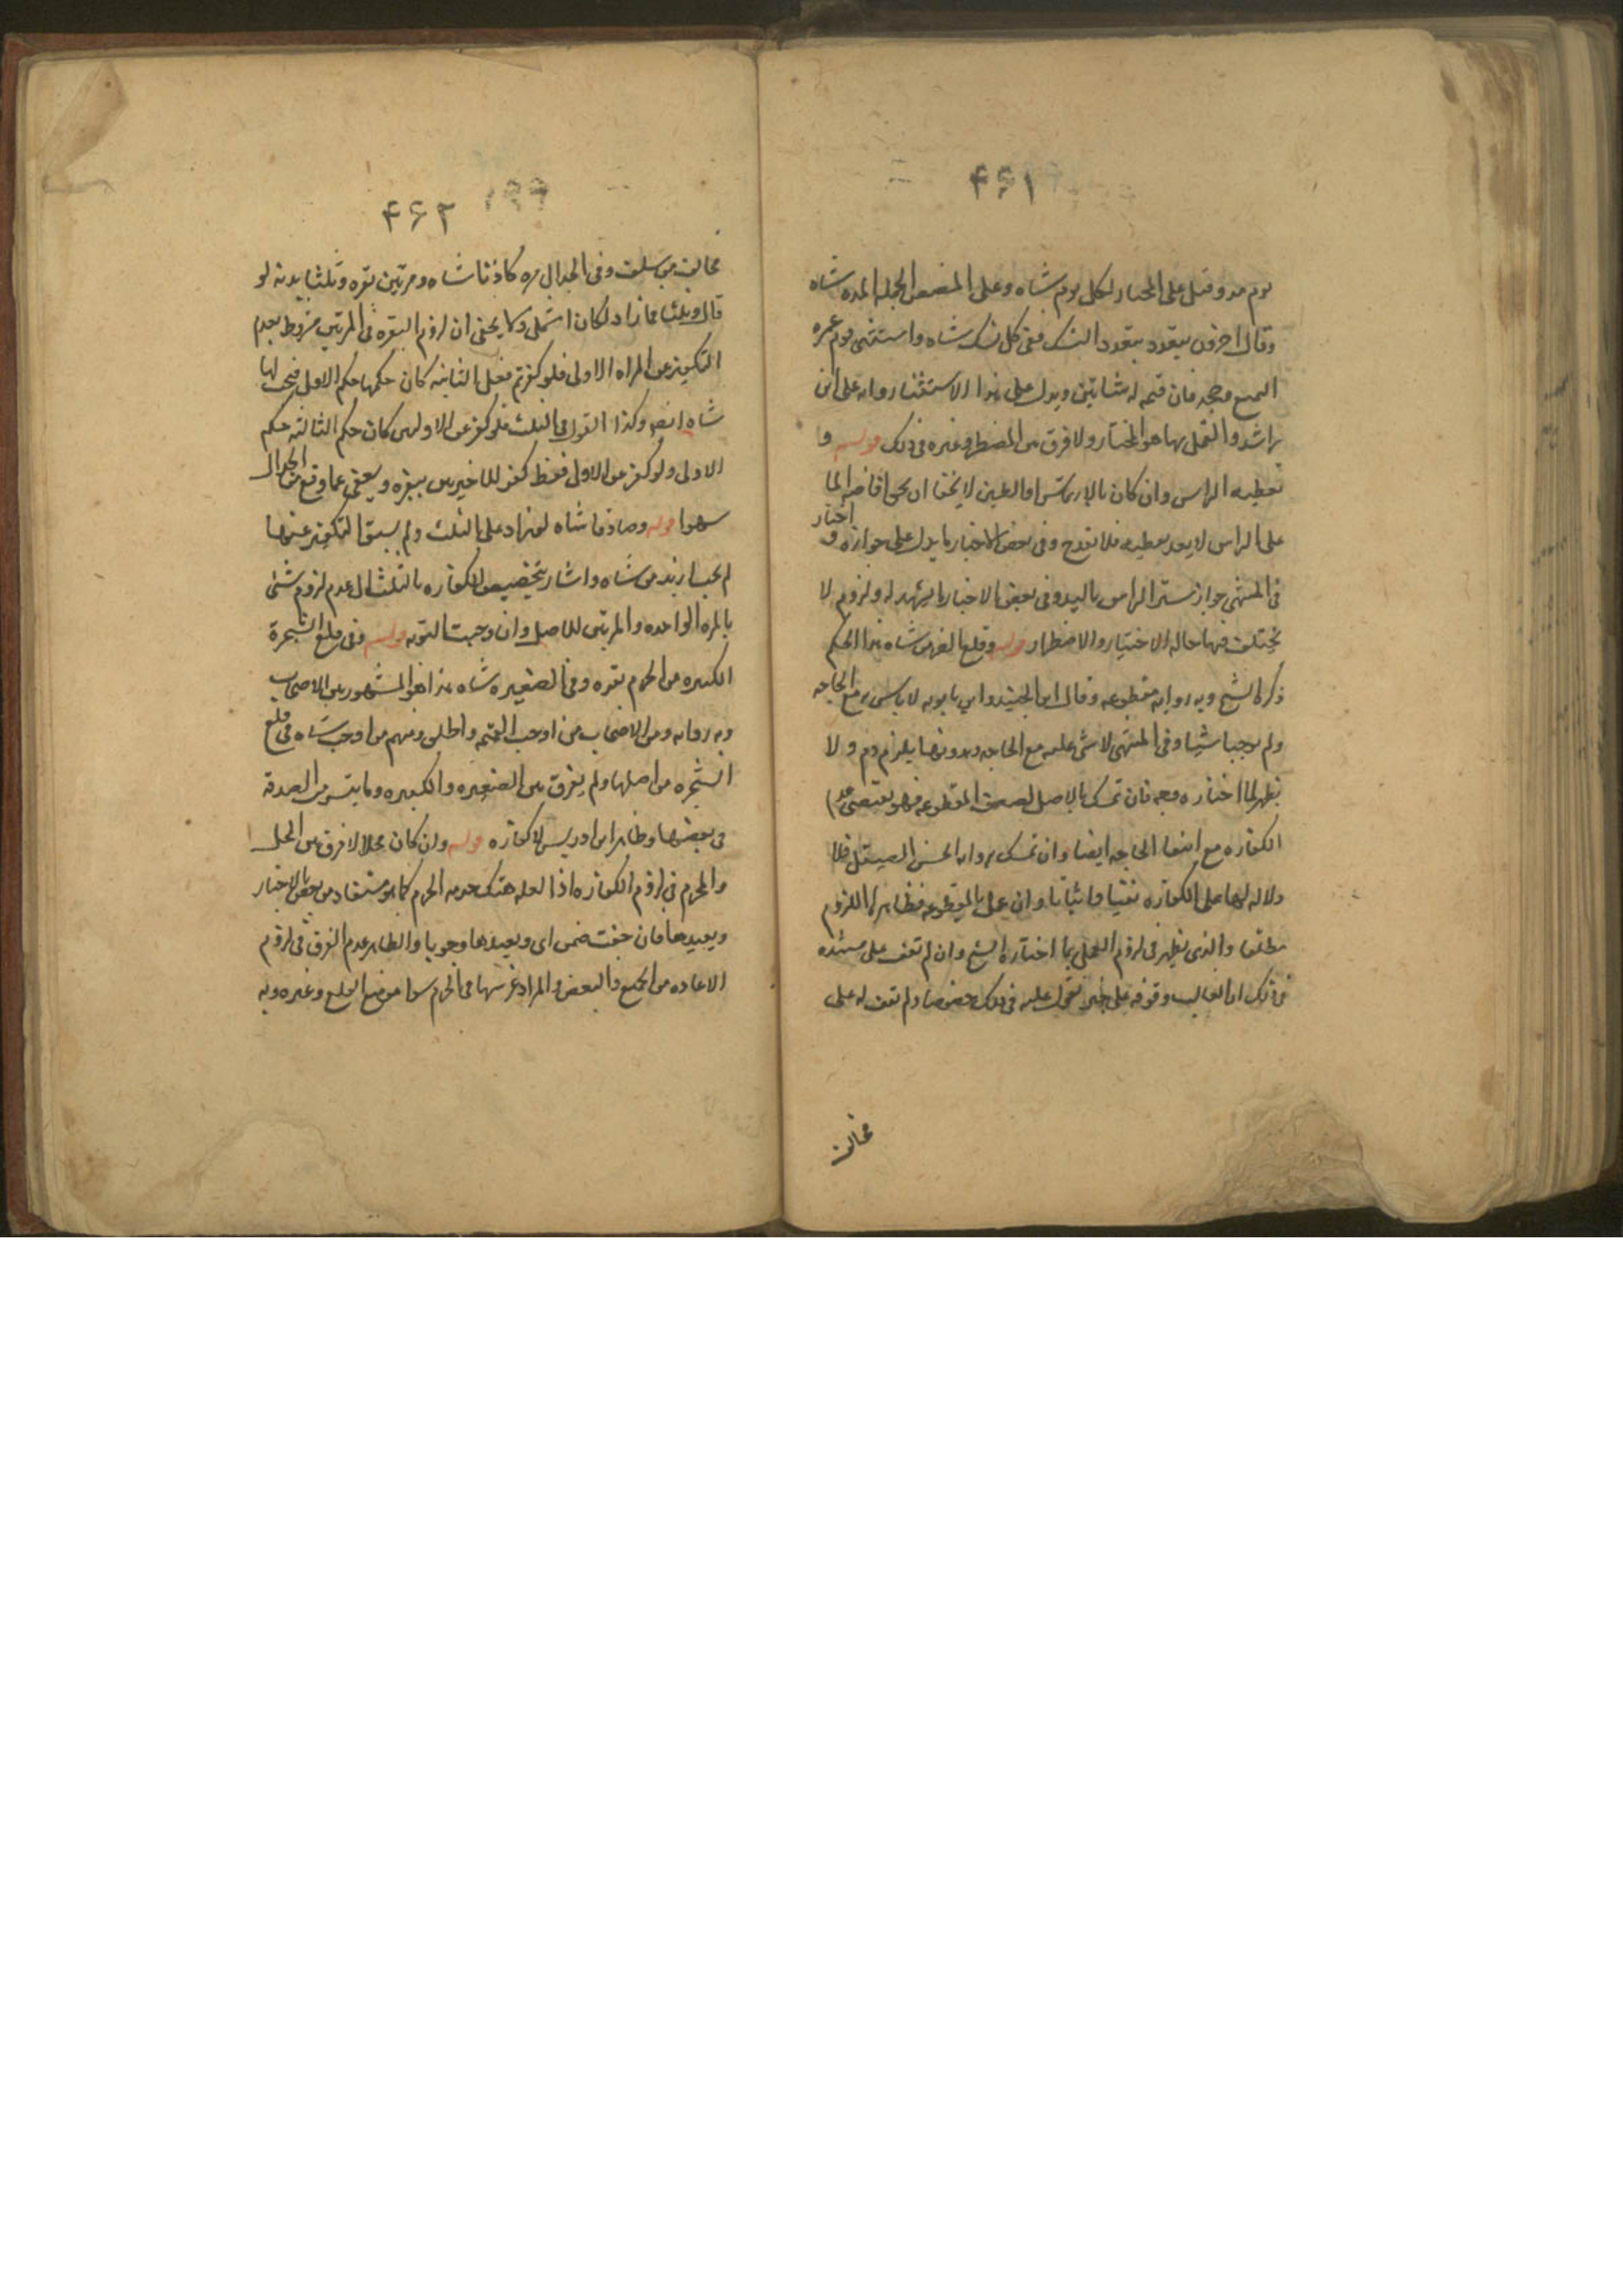 ۴۶۱
يوم مد وقيل على المختار لكل يوم شاه وعلى المضطر لجمله المده شاه
وقال اخرون يتعدد بتعدد النسك ففى كل نسك شاه واستثنى يوم عمره
التمتع وحجه فان فيهما شاتين ويدل على هذا الاستثنا روايه على ابن
راشد والعمل بها هو المختار ولا فرق بين المضطر وغيره فى ذلك قوله و
تغطيه الراس وان كان بالارتماس او الطين لا يخفى ان نحو افاضه الما
على الراس لا يعد تغطيه فلا يقدح وفى بعض الاخبار ما يدل على جوازه و اختار
فى المنتهى جواز ستر الراس باليد وفى بعض الاخبار ما يشهد له ولزوم لا
يختلف فيها حاله الاختيار والاضطرار قوله وقلع الضرس شاه هذا الحكم
ذكره الشيخ وبه روايه مقطوعه وقال ابن الجنيد وابن بابويه لا باس به مع الحاجه
ولم يوجبا شيئا وفى المنتهى لا شى عليه مع الحاجه وبدونها يلزم دم ولا
يظهر لما اختاره وجه فان تمسك بالاصل لضعف المقطوعه فهو يقتضى عدم
الكفاره مع انتفا الحاجه ايضا وان تمسك بروايه الحسن الصيقل فلا
دلاله لها على الكفاره نفيا واثباتا وان عمل بالمقطوعه فظاهرها اللزوم
مطلقا والذى يظهر فى لزوم العمل بما اختاره الشيخ وان لم نقف على مستنده
فى ذلك اذ الغالب وقوفه على خبر يعول عليه فى ذلك خصوصا ولم نقف له على
مخالف
۴۶۲
مخالف من سلف وفى الجدال مره كاذبا شاه ومرتين بقره وثلثا بدنه لو
قال وثلثا فما زاد لكان اشمل ولا يخفى ان لزوم البقره فى المرتين مشروط بعدم
التكفير عن المراه الاولى فلو كفر ثم فعل الثانيه كان حكمها حكم الاول فيجب لها
شاه ايضا وكذا القول فى الثلث فلو كفر عن الاوليين كان حكم الثالثه حكم
الاولى ولو كفر عن الاولى فقط كفر للاخيرين ببقره ويعفى عما وقع من الجدال
سهوا قوله وصادقا شاه لو زاد على الثلث ولم يسبق التكفير عنها
لم يجب ازيد من شاه واشار بتخصيص الكفاره بالثلث الى عدم لزوم شئ
بالمره الواحده والمرتين للاصل وان وجبت التوبه قوله وفى قلع الشجرة
الكبيره من الحرم بقره وفى الصغيره شاه هذا هو المشهور بين الاصحاب
وبه روايه ومن الاصحاب من اوجب القيمه واطلق ومنهم من اوجب شاه فى قلع
الشجره من اصلها ولم يفرق بين الصغيره والكبيره وما يتيسر من الصدقه
فى بعضها وظاهر ابن ادريس لا كفاره قوله وان كان محلا لا فرق بين المحل
والمحرم فى لزوم الكفاره اذا العله هتك حرمه الحرم كما هو مستفاد من بعض الاخبار
ويعيدها فان جفت ضمن اى ويعيدها وجوبا والظاهر عدم الفرق فى لزوم
الاعاده من الجميع والبعض والمراد غرسها فى الحرم سوا موضع القلع وغيره وبه